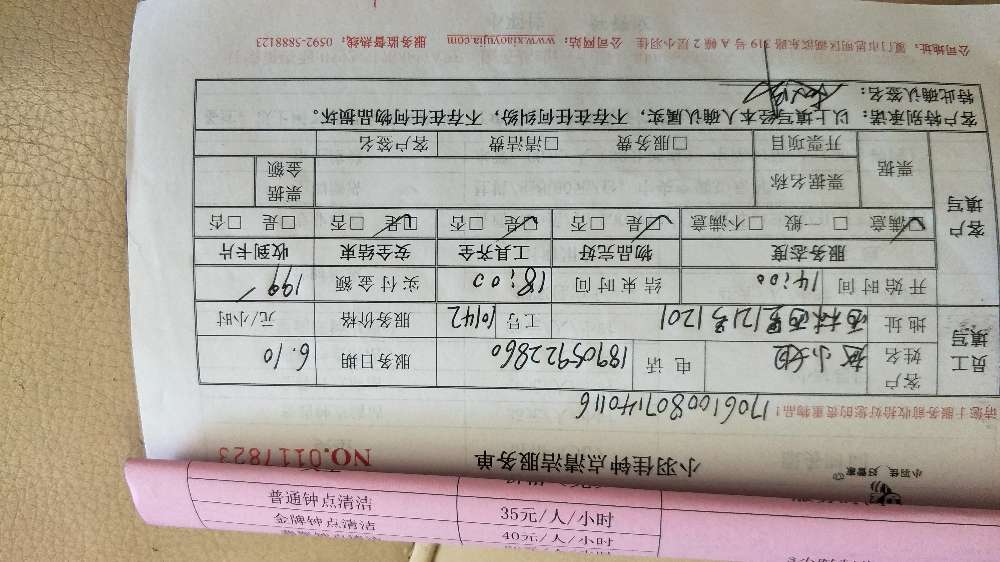 小羽佳 好管家
小羽佳钟点清洁服务单
NO.0117823
请您于服务前收拾好您的贵重物品！
1706100807140116
员工填写
客户姓名 小姐 电话 18905922860 服务日期 6.10
地址 西林西里121号1201 工号 10142 服务价格 元/小时
开始时间 14:00 结束时间 18:00 实付金额 199
客户填写
服务态度 物品完好 工具齐全 安全结束 收到卡片
☑满意 □一般 □不满意 ☑是 □否 ☑是 □否 ☑是 □否 □是 □否
票据 票据名称 票据金额
开票项目 □服务费 □清洁费 客户签名
客户特别承诺：以上填写经本人确认属实，不存在任何纠纷，不存在任何物品损坏。
特此确认签名：
公司地址：厦门市思明区湖滨东路319号A幢2层小羽佳 公司网站：www.xiaoyujia.com 服务监督热线：0592-5888123
普通钟点清洁 35元/人/小时
金牌钟点清洁 40元/人/小时